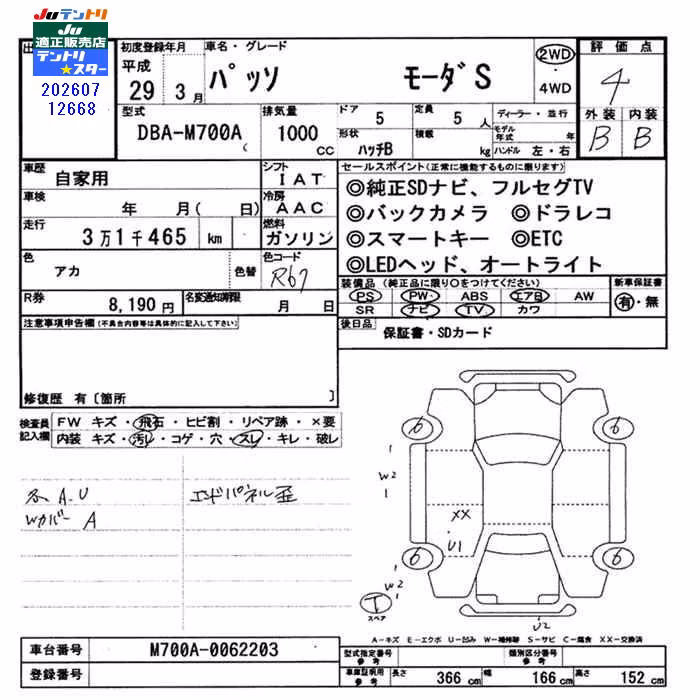 JUテントリ
JU
適正販売店
テントリ
★スター
202607
12668
初度登録年月 車名・グレード 2WD 評価点
平成 29 3月 パッソ モーダS ・4WD 4
外装 内装
B B
型式 排気量 ドア 定員 ディーラー・並行
DBA-M700A 1000 CC 5 5 人 モデル年式 年
形状 積載
ハッチB kg ハンドル 左・右
車歴 シフト セールスポイント(正常に機能するものに限ります)
自家用 IAT ◎純正SDナビ、フルセグTV
車検 冷房
年 月( 日) AAC ◎バックカメラ ◎ドラレコ
走行 燃料
3万1千465 km ガソリン ◎スマートキー ◎ETC
色 色コード
アカ 色替 R67 ◎LEDヘッド、オートライト
装備品(純正品に限り○をつけてください) 新車保証書
PS PW ABS エアB AW 有・無
SR ナビ TV カワ
R券 8,190円 名変通知期限 月 日
後日品 保証書・SDカード
注意事項申告欄(不具合内容等は具体的に記入して下さい)
修復歴 有〔箇所 〕
検査員 FW キズ・飛石・ヒビ割・リペア跡・×要
記入欄 内装 キズ・汚レ・コゲ・穴・スレ・キレ・破レ
各A.U エンドパネル歪
Wカバー A
6 6
1
W2
1
XX
U1
6 6
W2
1
T
スペア
U2
A-キズ E-エクボ U-凹み W-補修跡 S-サビ C-腐食 XX-交換済
車台番号 M700A-0062203
登録番号
型式指定番号 参考 類別区分番号 参考
車庫証明用 参考 長さ 366 cm 幅 166 cm 高さ 152 cm